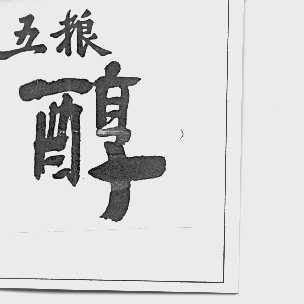 五粮
醇